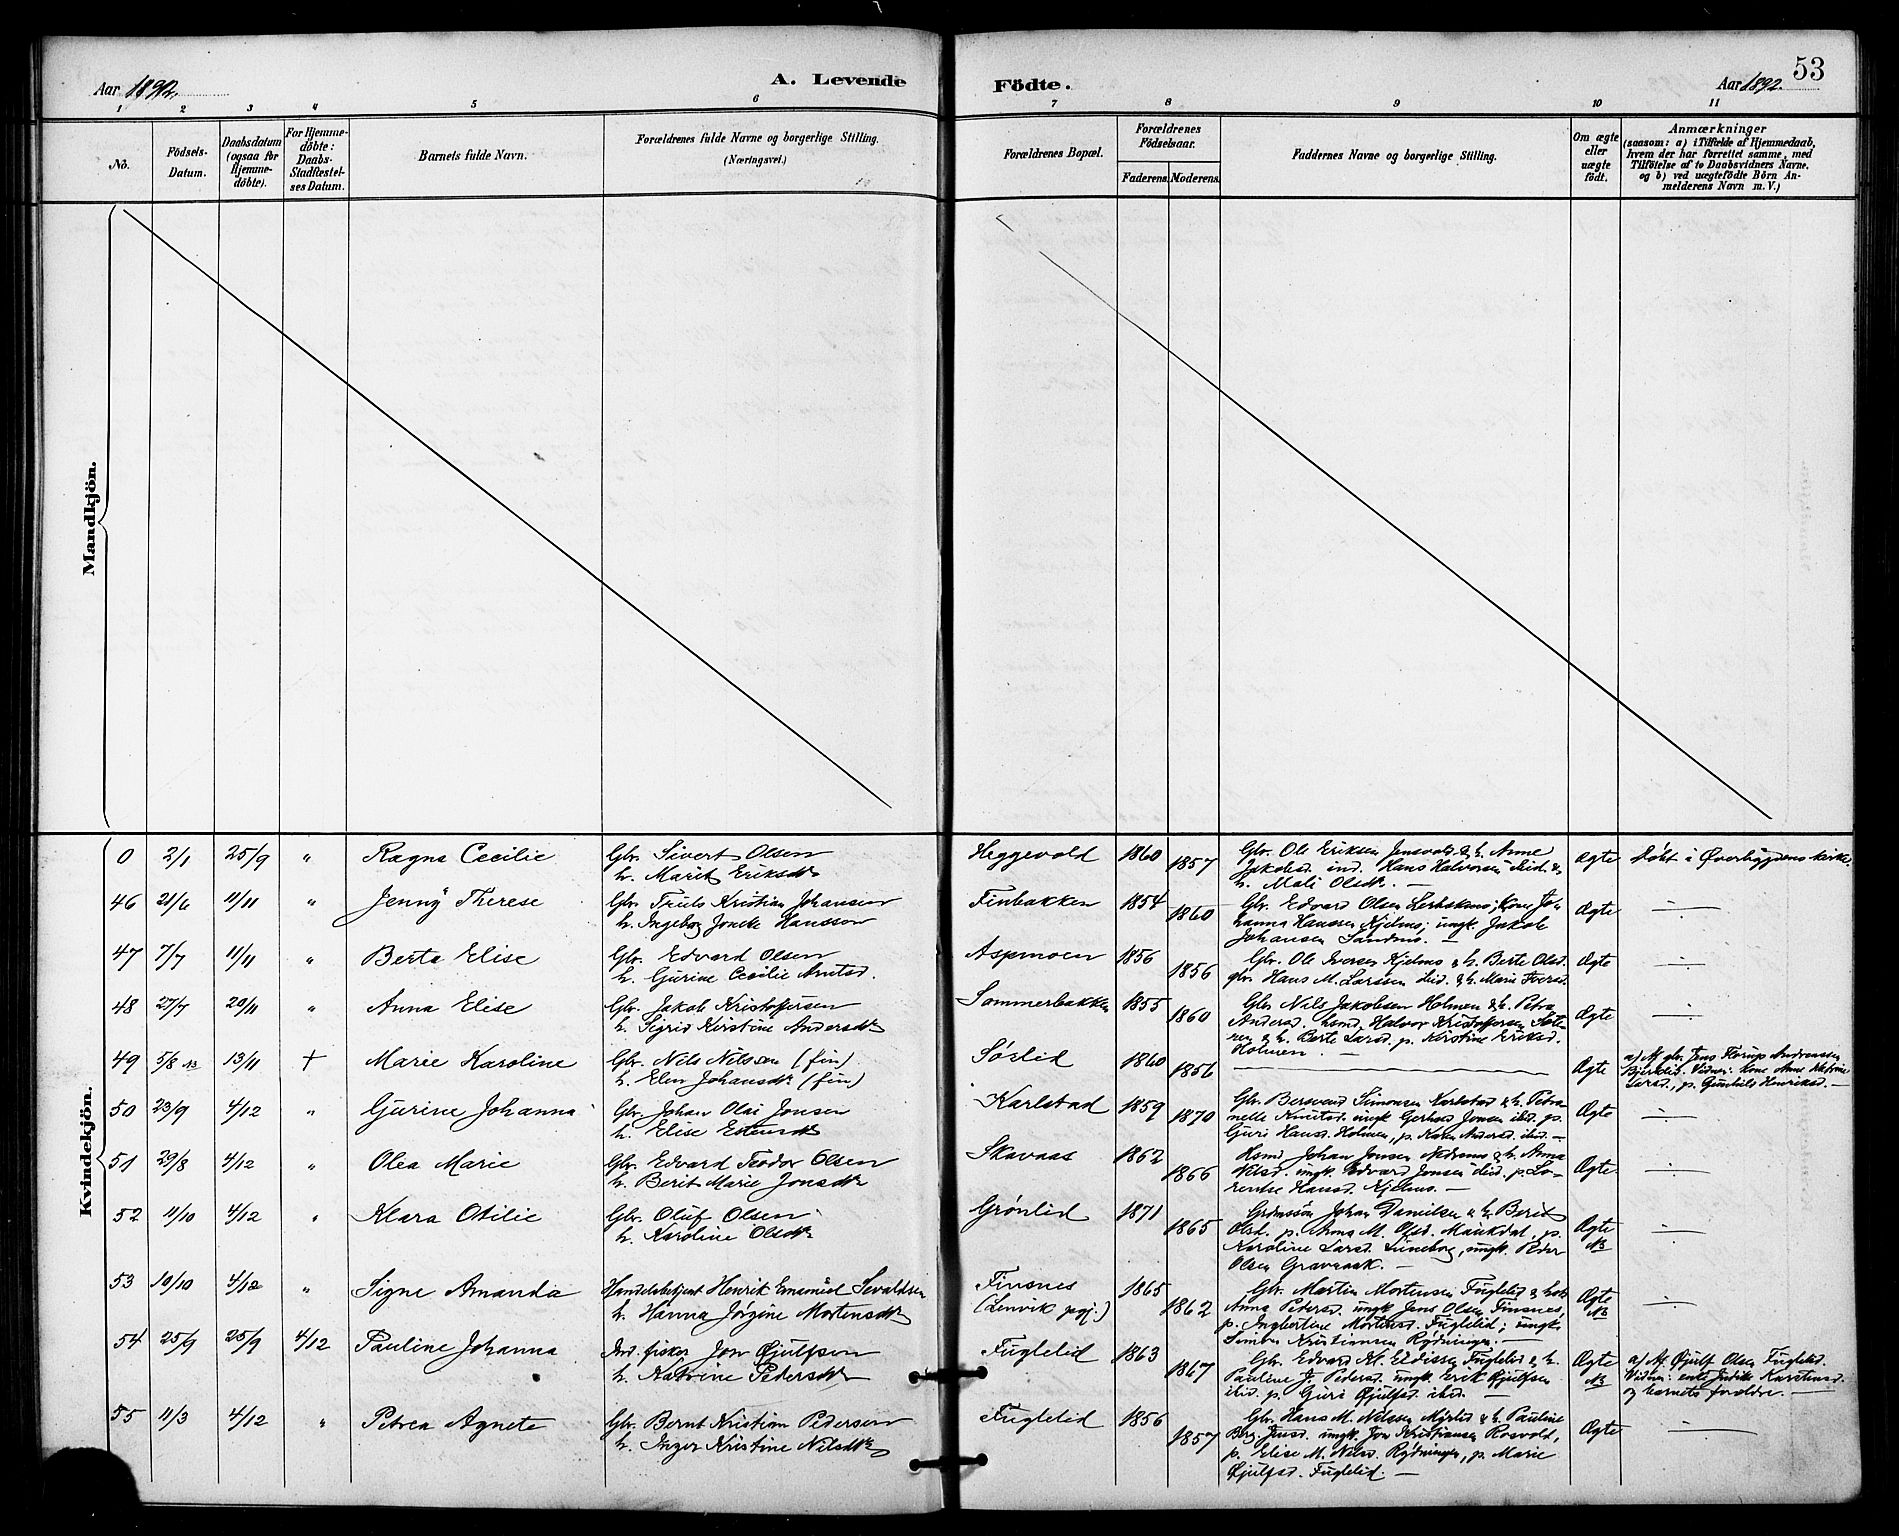 53
Aar 1892.
A. Levende
Födte.
Aar 1892.
1 2 3 4 5 6 7 8 9 10 11
No.
Födsels-
Datum.
Daabsdatum
(ogsaa for
Hjemme-
döbte).
For Hjemme-
döbte:
Daabs-
Stadfæstel-
ses Datum.
Barnets fulde Navn.
Forældrenes fulde Navne og borgerlige Stilling.
(Næringsvei.)
Forældrenes Bopæl.
Forældrenes
Födselsaar.
Faderens. Moderens.
Faddernes Navne og borgerlige Stilling.
Om ægte
eller
uægte
födt.
Anmærkninger
(saasom: a) i Tilfælde af Hjemmedaab,
hvem der har forrettet samme, med
Tilföielse af to Daabsvidners Navne.
og b) ved uægtefödte Börn An-
melderens Navn m. V.)
Mandkjön.
Kvindekjön.
0 2/1 25/9 " Ragna Cecilie
Gbr. Sivert Olsen
h. Marit Eriksdtr
Heggevold 1860 1857
Gbr. Ole Eriksen Jensvold & h. Anne
Jakobsd. ind. Hans Halvorsen ibid. &
h. Mali Olsdtr. —
Ægte
Døbt i Øverbygdens kirke.
46 21/6 11/11 " Jenny Therese
Gbr. Truls Kristian Johansen
h. Ingeborg Hansson
Finbakken 1854 1860
Gbr. Edvard Olsen kone Jo-
hanna Hanssen Kjelmo; ungk. Jakob
Johansen Sandmo. —
Ægte —:—
47 7/7 11/11 " Berta Elise
Gbr. Edvard Olsen
h. Gjurine Cecilie Arntsd.
Aspmoen 1856 1856
Gbr. Ole Iversen Kjelmo & h. Berte Olsd.
gbr. Hans M. Larssen ibid. & h. Marie Iversd.
Ægte —:—
48 27/7 20/11 " Anna Elise
Gbr. Jakob Kristoffersen
h. Sigrid Kirstine Andersdtr
Sommerbakken 1855 1860
Gbr. Nils Jakobsen Holmen & h. Petra
Andersd. husmd. Halvor Kristoffersen Sæte-
ren & h. Berte Larsd. p. Kirstine Eriksd.
Holmen. —
Ægte —:—
49 5/8 NB 13/11 + Marie Karoline
Gbr. Nils Nilssen (fin)
h. Elen Johansdtr (fin)
Sørlid 1860 1856
Ægte
a) Af gbr. Jens Florup Andreassen
Bjerklid. Vidner: Kone Anne
Larsd., p. Gunhild Henriksd. —
50 23/9 4/12 " Gjurine Johanna
Gbr. Johan Olai Jonsen
h. Elise Estensdtr
Karlstad 1859 1870
Gbr. Bersvend Simonsen Karlstad & h. Petro-
nelle Knutsd. ungk. Gerhard Jonsen ibid. p.
Guri Hansd. Holmen, p. Karen Andersd. ibid. —
Ægte —:—
51 29/8 4/12 " Olea Marie
Gbr. Edvard Teodor Olsen
h. Berit Marie Jonsdtr
Skavaas 1862 1866
Husmd. Johan Jonsen Nedremo & h. Anna
Nilsd. ungk. Edvard Jonsen ibid. p. Lo-
rentse Hansd. Kjelmo. —
Ægte —:—
52 11/10 4/12 " Klara Otilie
Gbr. Oluf Olsen
h. Karoline Olsdtr
Grønlid 1871 1865
Grdmssøn Johan Danielsen & h. Berit
Olsd. p. Anna M. Olsd. Maukdal, p.
Karoline Larsd. Luneborg, ungk. Peder
Olsen Gravaaak. —
Ægte NB —:—
53 10/10 4/12 " Signe Amanda
Handelsbetjent Henrik Emanuel Sevaldsen
h. Hanna Jørgine Mortensdtr
Finsnes
(Lenvik pgj.)
1865 1862
Gbr. Martin Mortensen Fuglelid & h.
Anna Pedersd. ungk. Jens Olsen Finsnes,
p. Ingbertine Mortensd. Fuglelid; ungk.
Simon Kristiansen Rydningen. —
Ægte NB —:—
54 25/9 25/9 4/12 Pauline Johanna
Ind. fisker Jon Øjulfsen
h. Katrine Pedersdtr
Fuglelid 1863 1867
Gbr. Edvard M. Eldissen Fuglelid & h.
Pauline J. Pedersd. ungk. Erik Øjulfsen
ibid. p. Guri Øjulfsd. ibid. —
Ægte NB
a) Af Øjulf Olsen Fuglelid.
Vidner: enke Karstensd.
og barnets forældre. —
55 11/3 4/12 " Petrea Agnete
Gbr. Bernt Kristian Pedersen
h. Inger Kristine Nilsdtr
Fuglelid 1856 1857
Gbr. Hans M. Nilssen Myrlid & h. Pauline
Berg Jensd. ungk. Jon Kristiansen Rosvold,
p. Elise M. Nilsd. Rydningen, p. Marie
Øjulfsd. Fuglelid. —
Ægte —:—